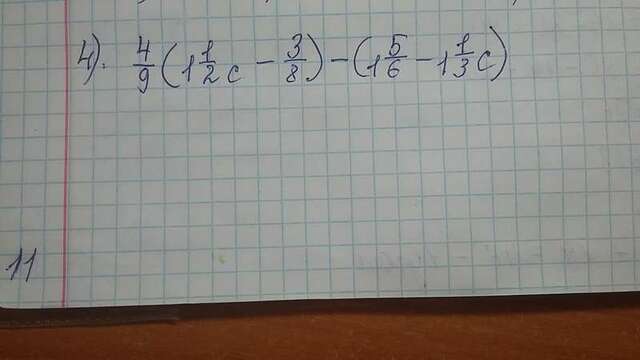 11
4). 4/9 (1 1/2 c - 3/8) - (1 5/6 - 1 1/3 c)